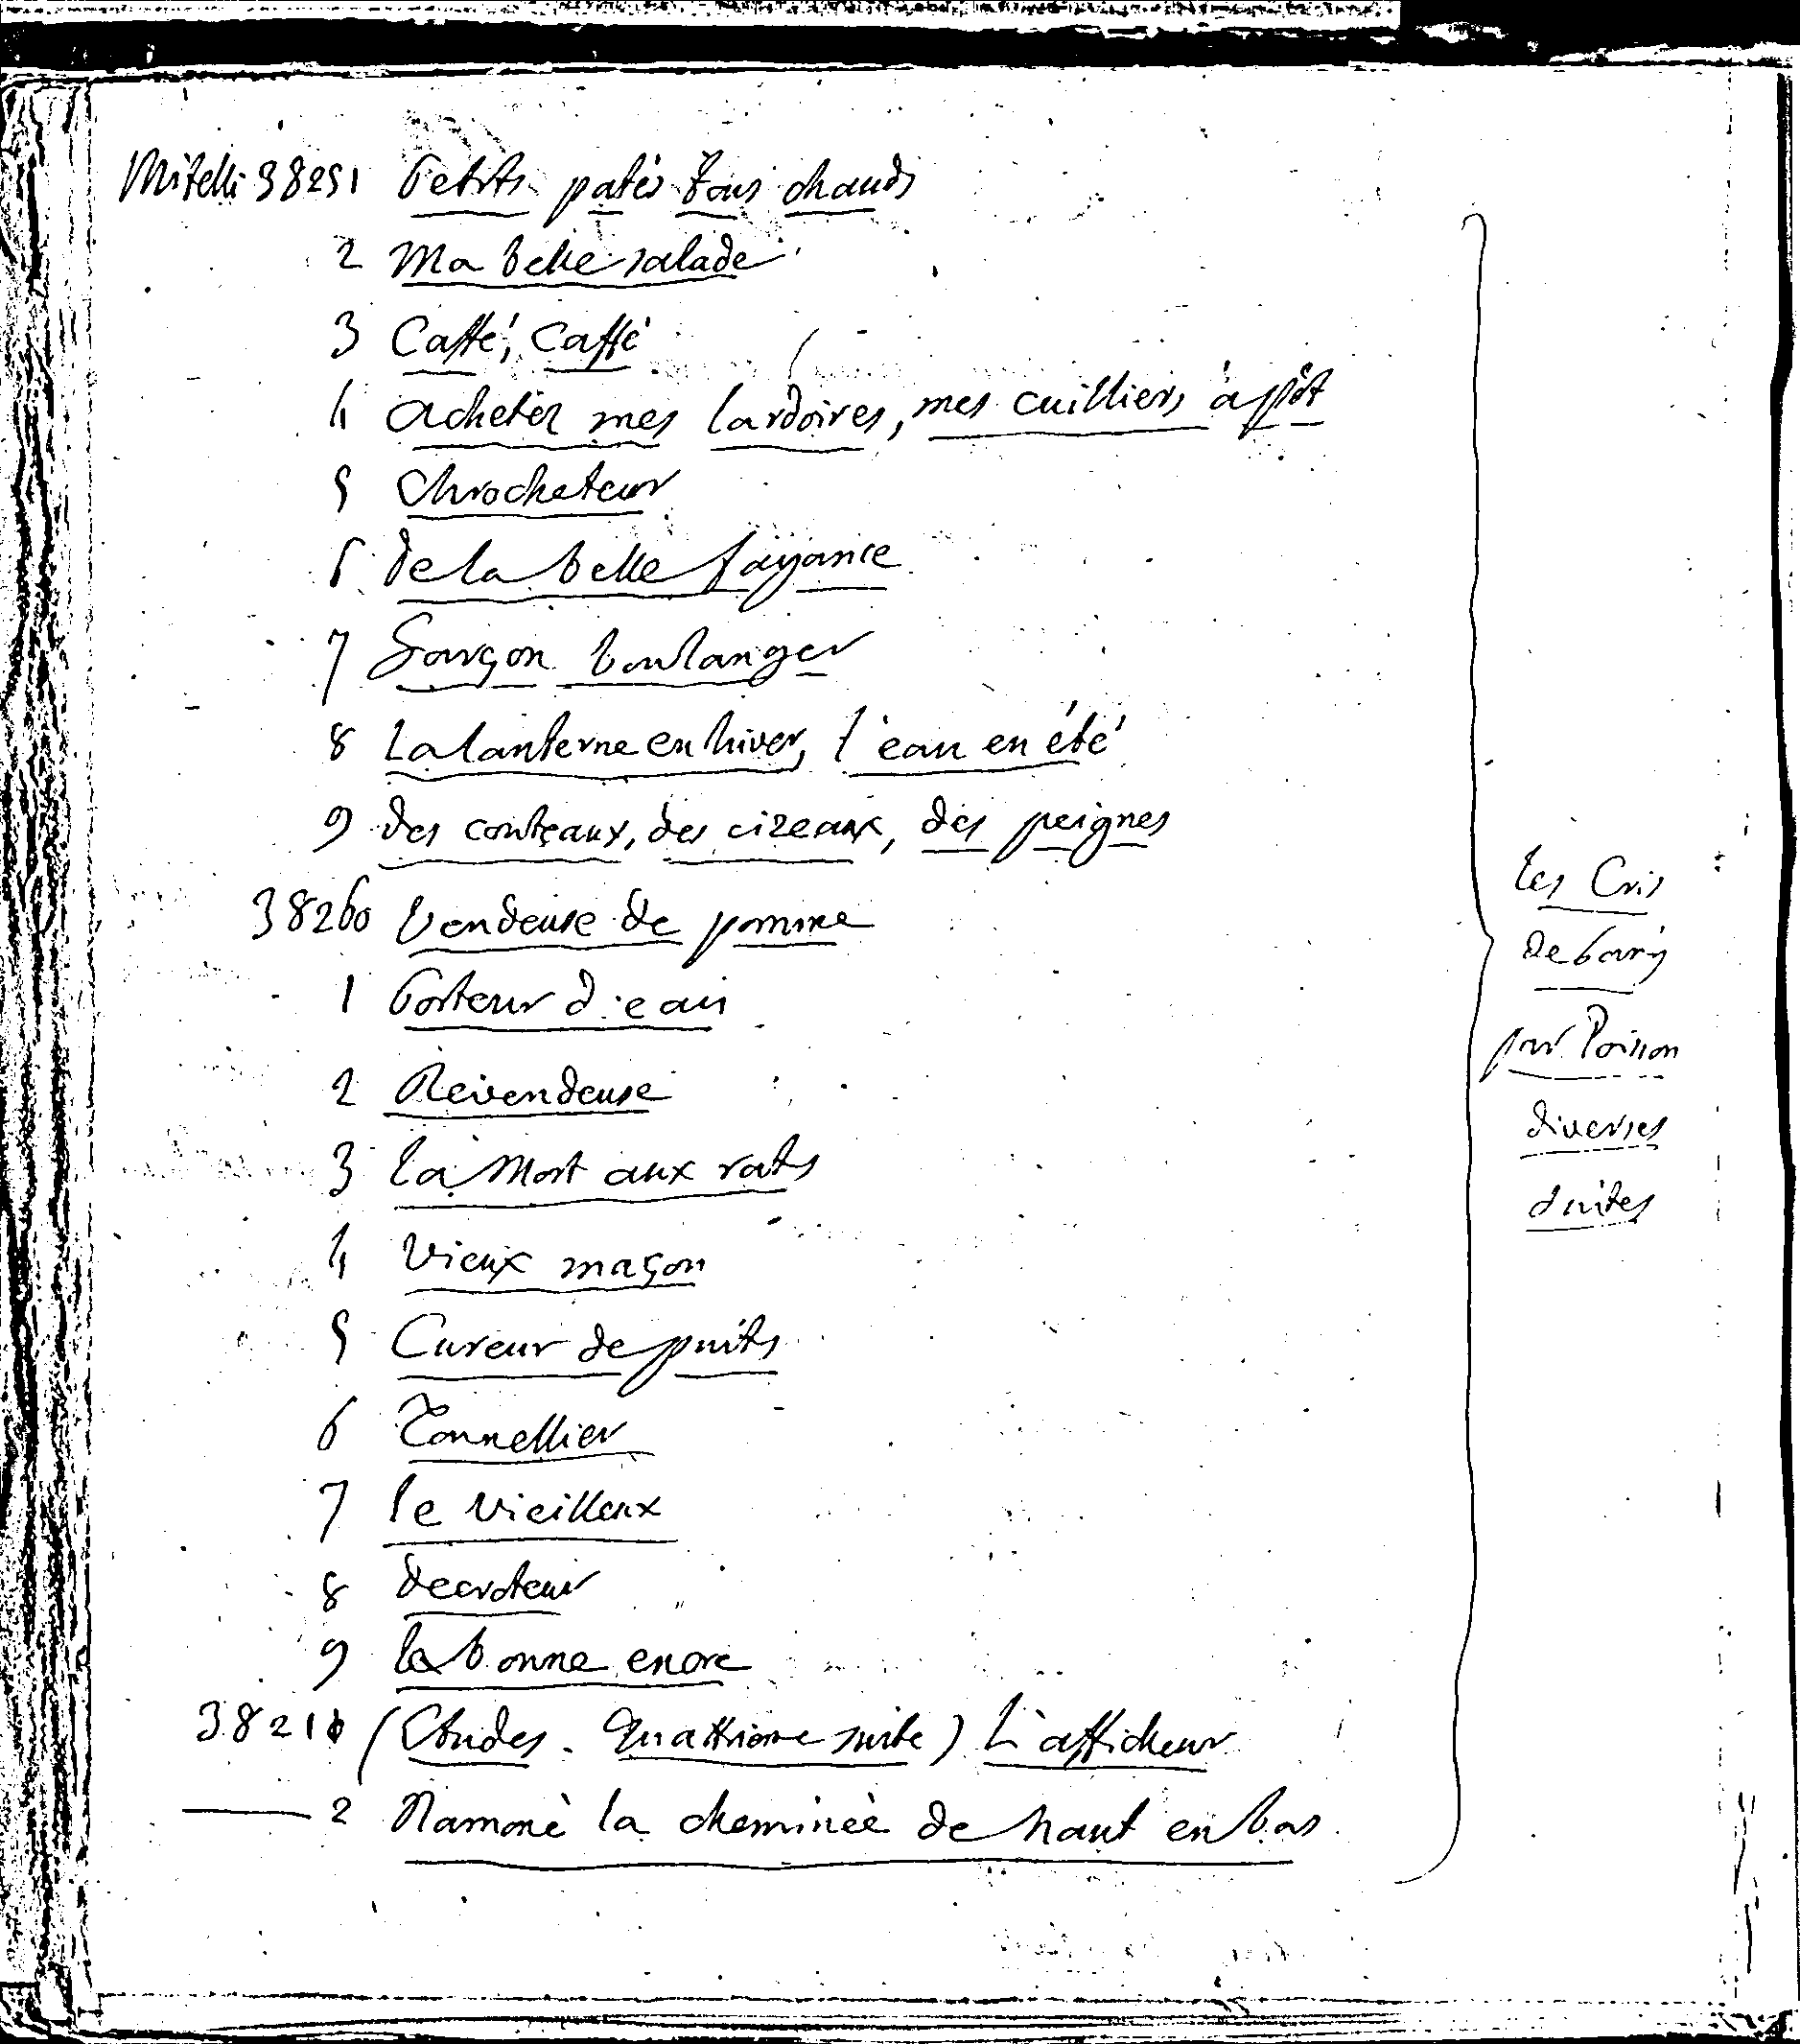 Mitelli 38251 Petits patés tous chauds
2 Ma belle salade
3 Caffé, Caffé
4 acheter mes lardoires, mes cuilliers à pôt
5 Chrocheteur
6 de la belle fayance
7 Garçon boulanger
8 La lanterne en hiver, l'eau en été
9 des couteaux, des cizeaux, des peignes
38260 Vendeuse de pomme
1 Porteur d'eau
2 Revendeuse
3 La Mort aux rats
4 Vieux maçon
5 Cureur de puits
6 Tonnellier
7 le vieilleux
8 decroteur
9 la bonne encre
(Etudes. Quattrieme suite) L'afficheur
2 Rammoné la cheminée de haut en bas
Les Cris
de Paris
par Poisson
diverses
suites